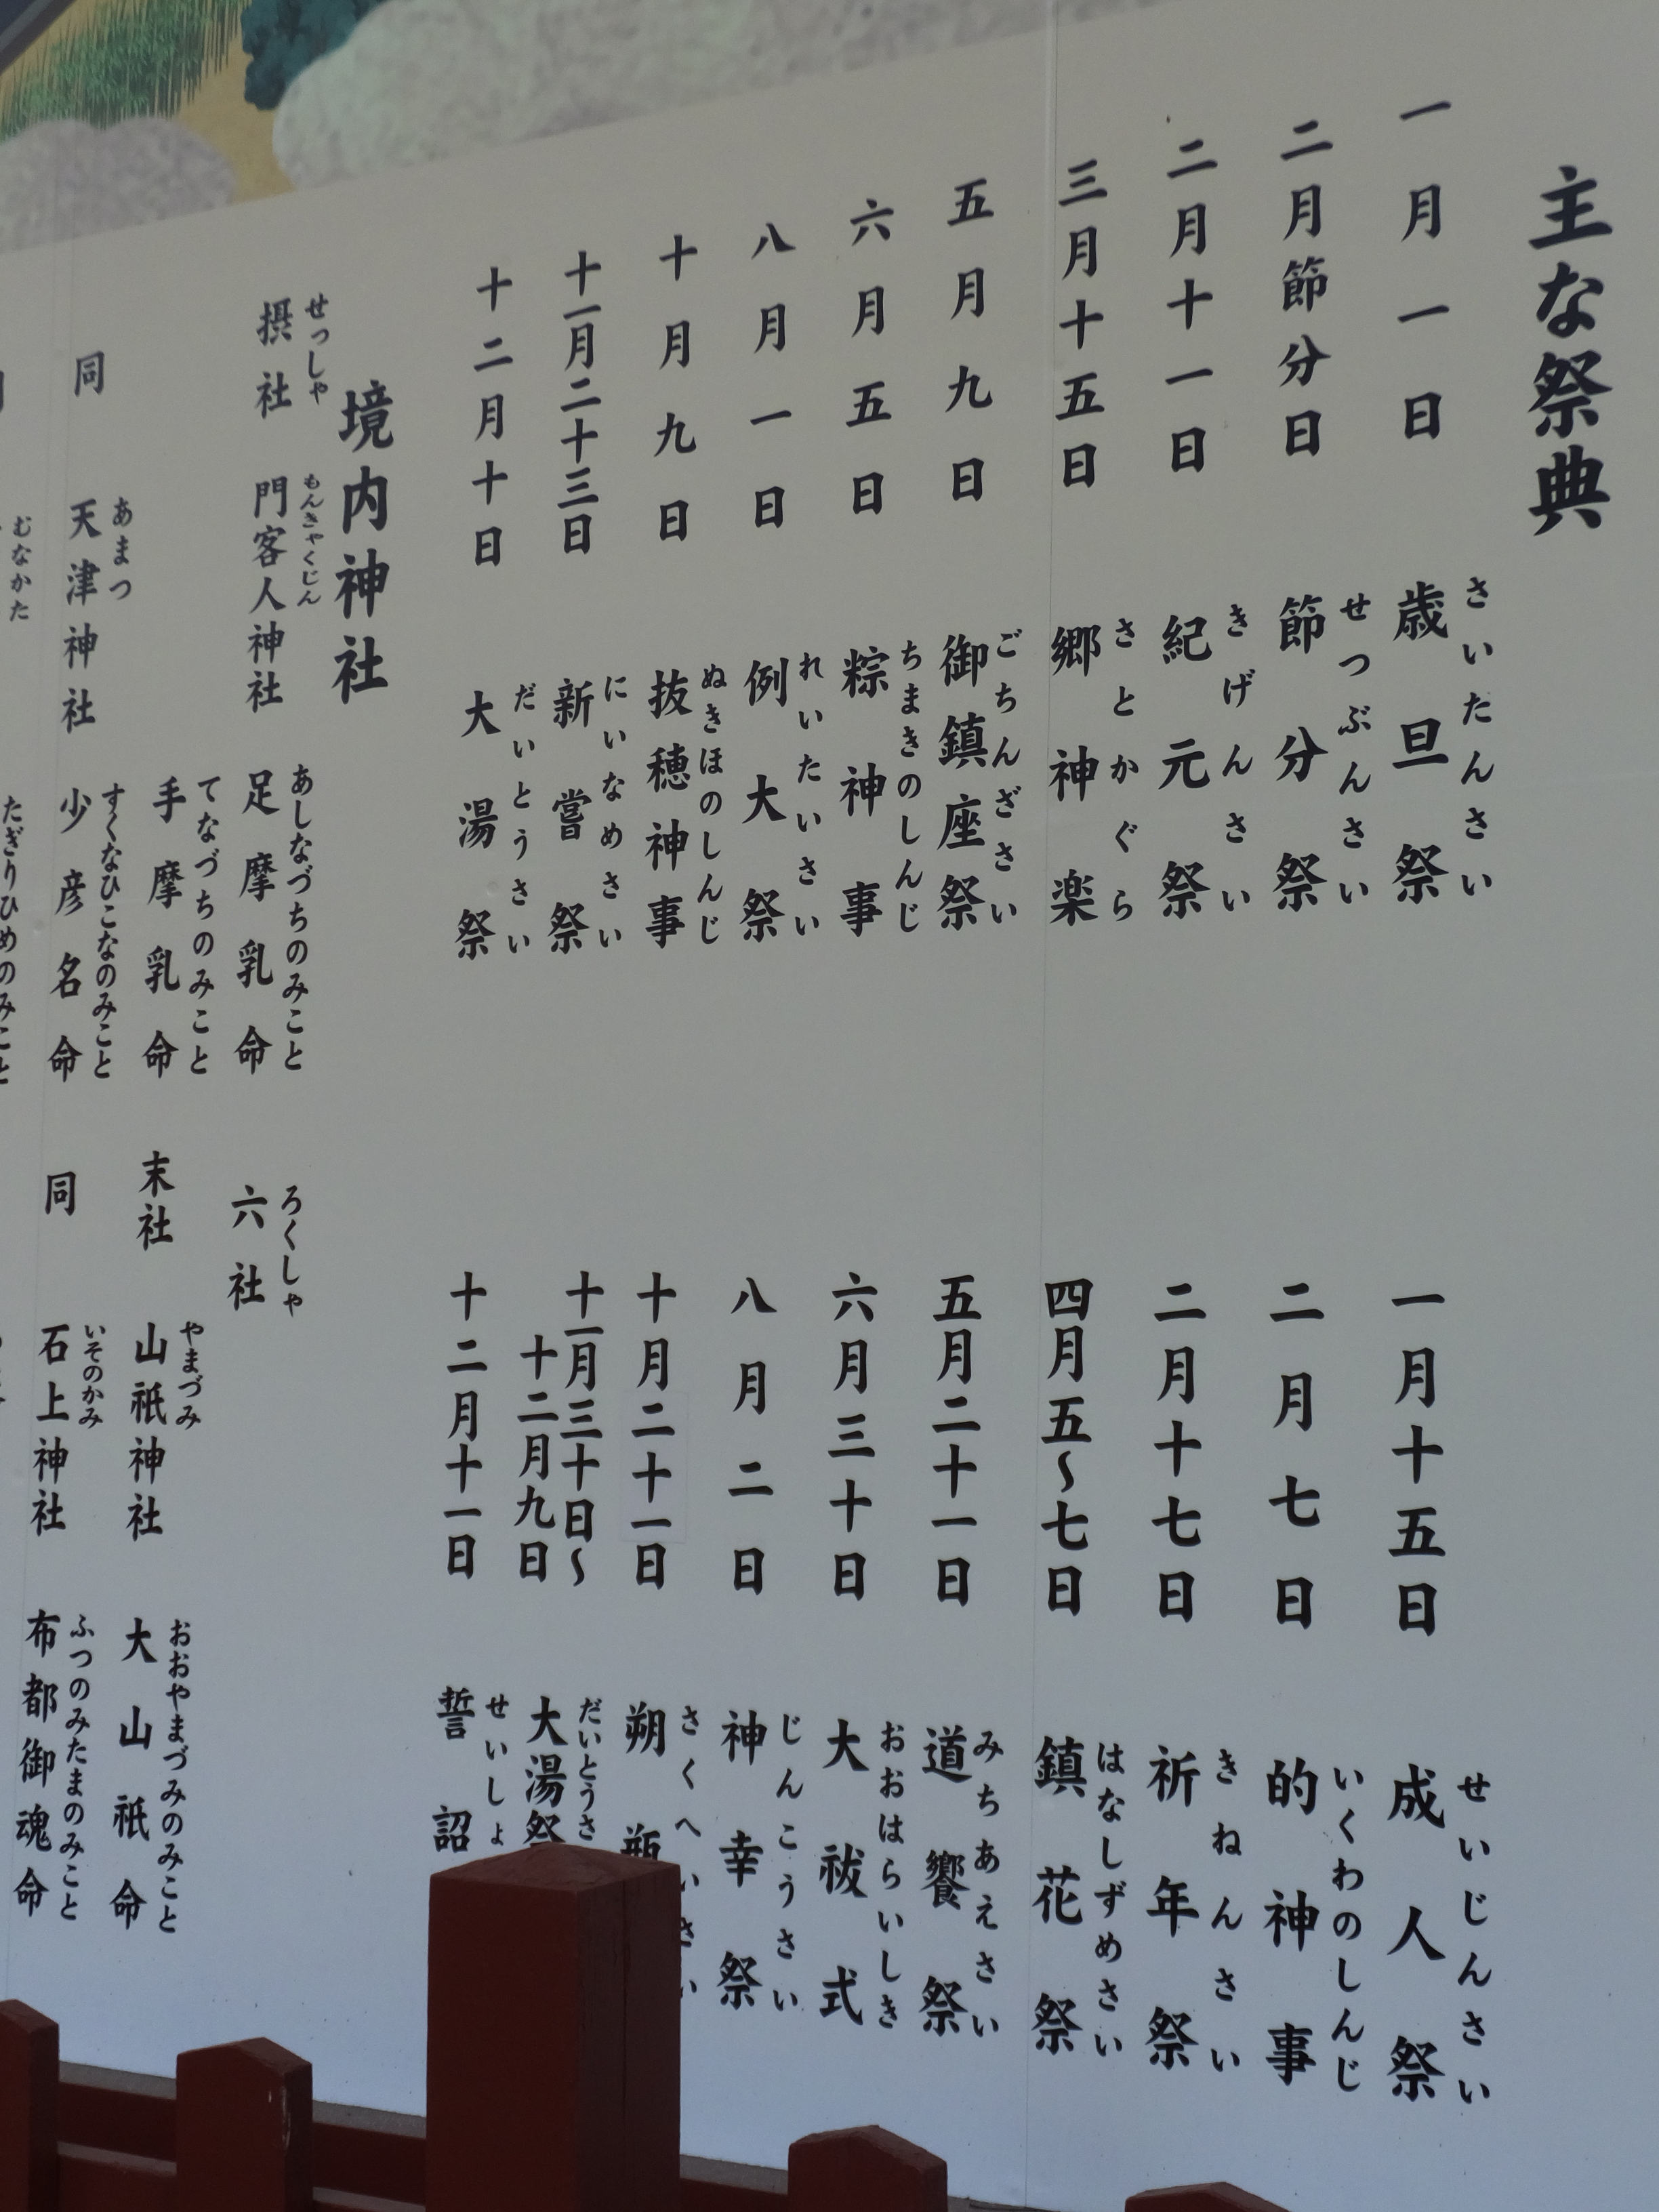 主な祭典
一月一日 歳旦祭 さいたんさい
一月十五日 成人祭 せいじんさい
二月節分日 節分祭 せつぶんさい
二月七日 的神事 いくわのしんじ
二月十一日 紀元祭 きげんさい
二月十七日 祈年祭 きねんさい
三月十五日 郷神楽 さとかぐら
四月五〜七日 鎮花祭 はなしずめさい
五月九日 御鎮座祭 ごちんざさい
五月二十一日 道饗祭 みちあえさい
六月五日 粽神事 ちまきのしんじ
六月三十日 大祓式 おおはらいしき
八月一日 例大祭 れいたいさい
八月二日 神幸祭 じんこうさい
十月九日 抜穂神事 ぬきほのしんじ
十月二十一日 朔瓶 さくへいさい
十一月二十三日 新嘗祭 にいなめさい
十一月三十日〜
十二月九日 大湯祭 だいとうさ
十二月十日 大湯祭 だいとうさい
十二月十一日 誓詔 せいしょ
境内神社
摂社 せっしゃ 門客人神社 もんきゃくじん 足摩乳命 あしなづちのみこと
手摩乳命 てなづちのみこと
六社 ろくしゃ
末社 山祇神社 やまづみ 大山祇命 おおやまづみのみこと
同 天津神社 あまつ 少彦名命 すくなひこなのみこと
同 石上神社 いそのかみ 布都御魂命 ふつのみたまのみこと
むなかた たぎりひめのみこと